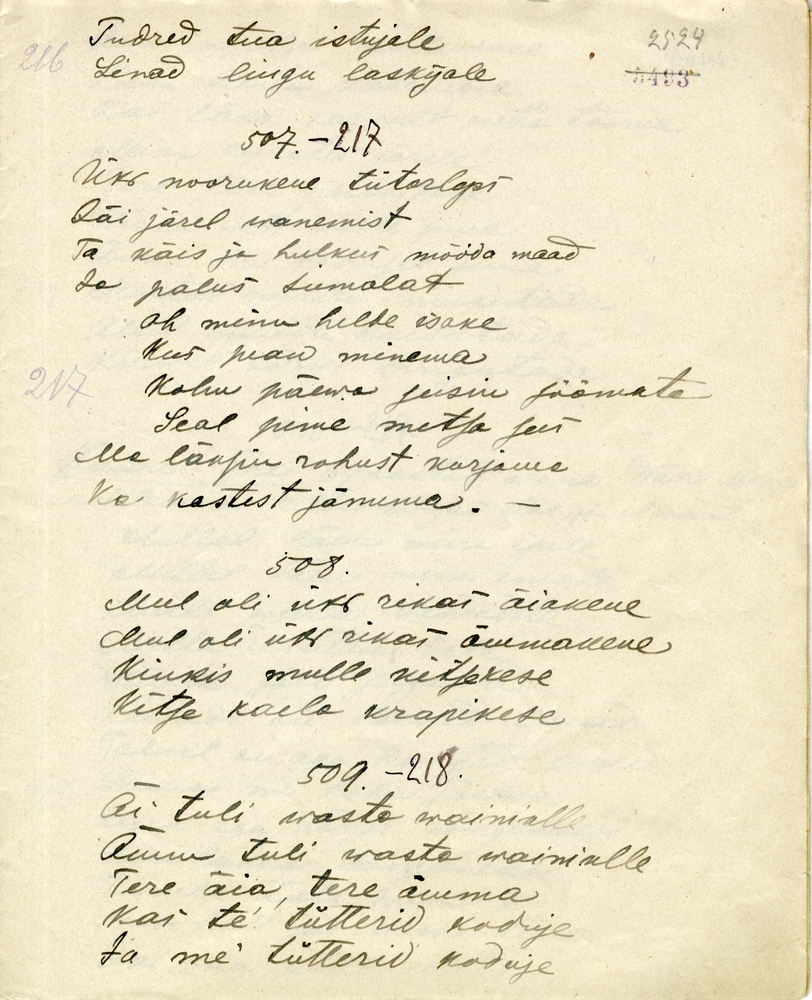 2524
5493
216
Tudred tua istujale
Linad lingu laskijale
507. – 217
Üks noorukene tütarlaps
Jäi järel wanemist
Ta käis ja hulkus mööda maad
Ja palus Jumalat
Oh minu helde isake
Kus pean minema
217
Kolm päewa jeisin söömata
Seal pime metsa sees
Ma läksin rohust korjama
Ka kastest jämema. —
508.
Mul oli üks rikas äiakene
Mul oli üks rikas ämmakene
Kinkis mulle kitsekese
Kitse kaela krapikese
509. – 218.
Äi tuli wasta wainiulle
Ämm tuli wasta wainiulle
Tere äia, tere ämma
Kas te' tütterid koduje
Ja me' tütterid koduje